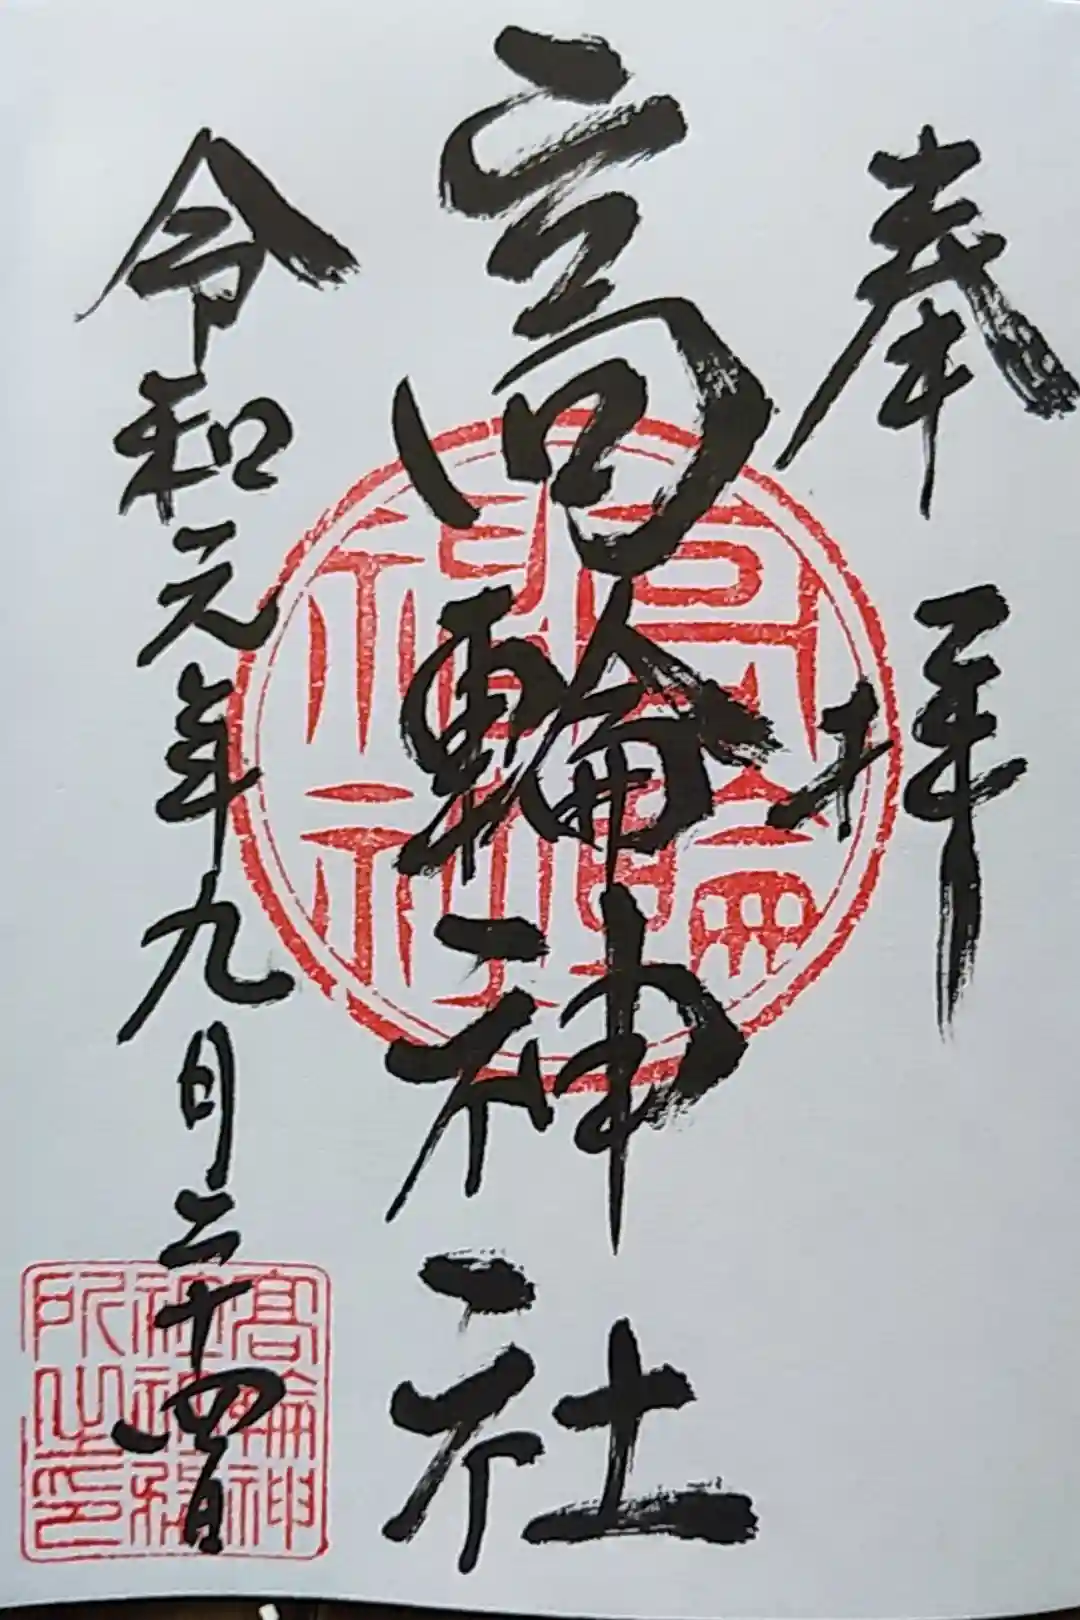 奉拝
高輪神社
令和元年九月二十四日
高輪神社
高輪神社社務所之印